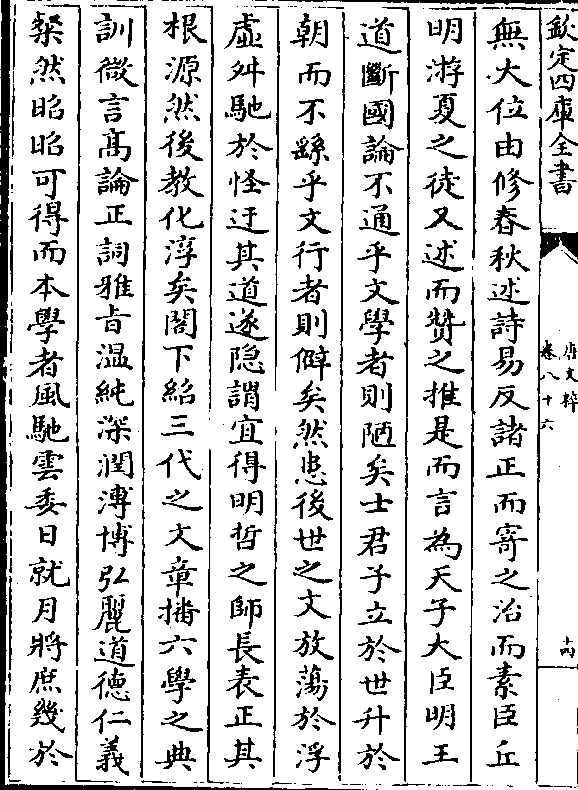 欽定四庫全書
唐文粹
卷八十六
十四
無大位由修春秋述詩易反諸正而寄之治而素臣丘
明游夏之徒又述而贊之推是而言為天子大臣明王
道斷國論不通乎文學者則陋矣士君子立於世升於
朝而不繇乎文行者則僻矣然患後世之文放蕩於浮
虛舛馳於怪迂其道遂隐謂宜得明哲之師長表正其
根源然後教化淳矣閣下紹三代之文章播六學之典
訓微言髙論正詞雅㫖温純深潤溥博弘麗道徳仁義
粲然昭昭可得而本學者風馳雲委日就月將庶幾於